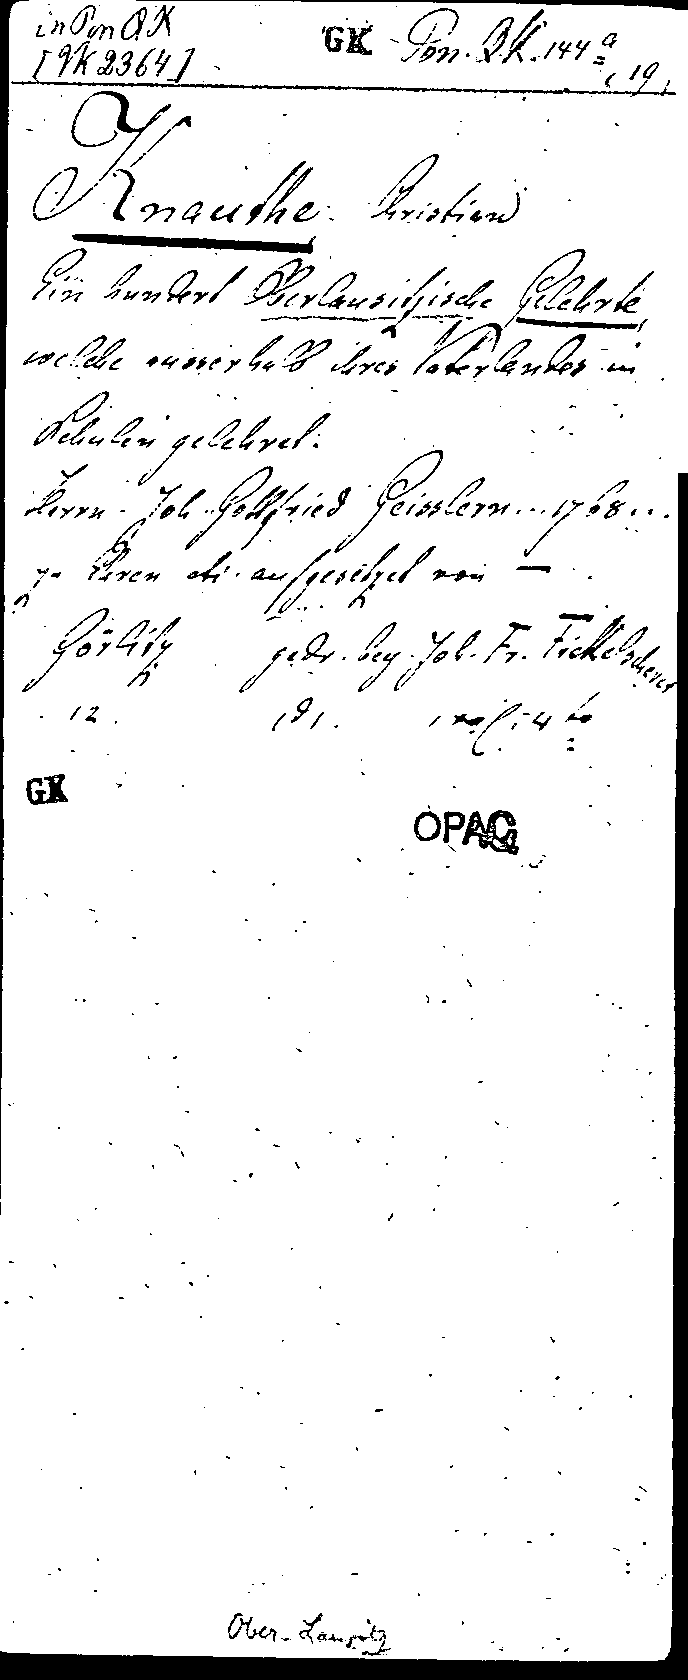 in Pon QK
[VK 2364]
GK Pon. QK. 144 a
(19)
Knauthe. Christian
Ein hundert Oberlausitzische Gelehrte,
welche ausserhalb ihres Vaterlandes in
Schulen gelehret.
Herrn Joh. Gottfried Geisslern... 1768...
zu Ehren etc. aufgesetzet von —
Görlitz gedr. bey Joh. Fr. Fickelscherer
12.
GK
OPAC
Ober-Lausitz